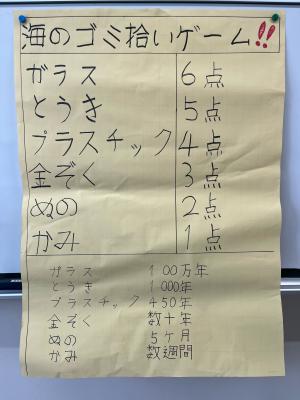 海のゴミ拾いゲーム!!
ガラス 6点
とうき 5点
プラスチック 4点
金ぞく 3点
ぬの 2点
かみ 1点
ガラス 100万年
とうき 1000年
プラスチック 450年
金ぞく 数十年
ぬの 5ケ月
かみ 数週間